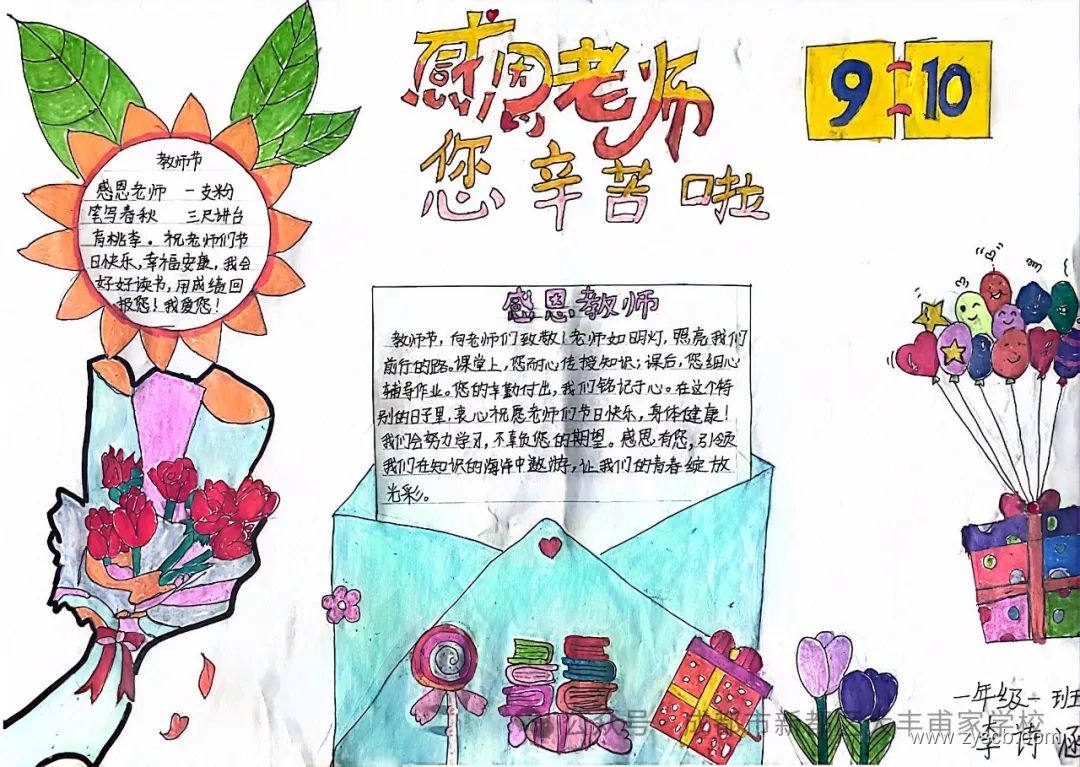 感恩老师
您辛苦啦
9 10
教师节
感恩老师 一支粉
笔写春秋 三尺讲台
育桃李。祝老师们节
日快乐,幸福安康,我会
好好读书,用成绩回
报您!我爱您!
感恩教师
教师节,向老师们致敬!老师如明灯,照亮我们
前行的路。课堂上,您耐心传授知识;课后,您细心
辅导作业。您的辛勤付出,我们铭记于心。在这个特
别的日子里,衷心祝愿老师们节日快乐,身体健康!
我们会努力学习,不辜负您的期望。感恩有您,引领
我们在知识的海洋中遨游,让我们的青春绽放
光彩。
一年级一班
李诗涵
公众号 成都市新都区 丰甫家学校
www.zyscb.com